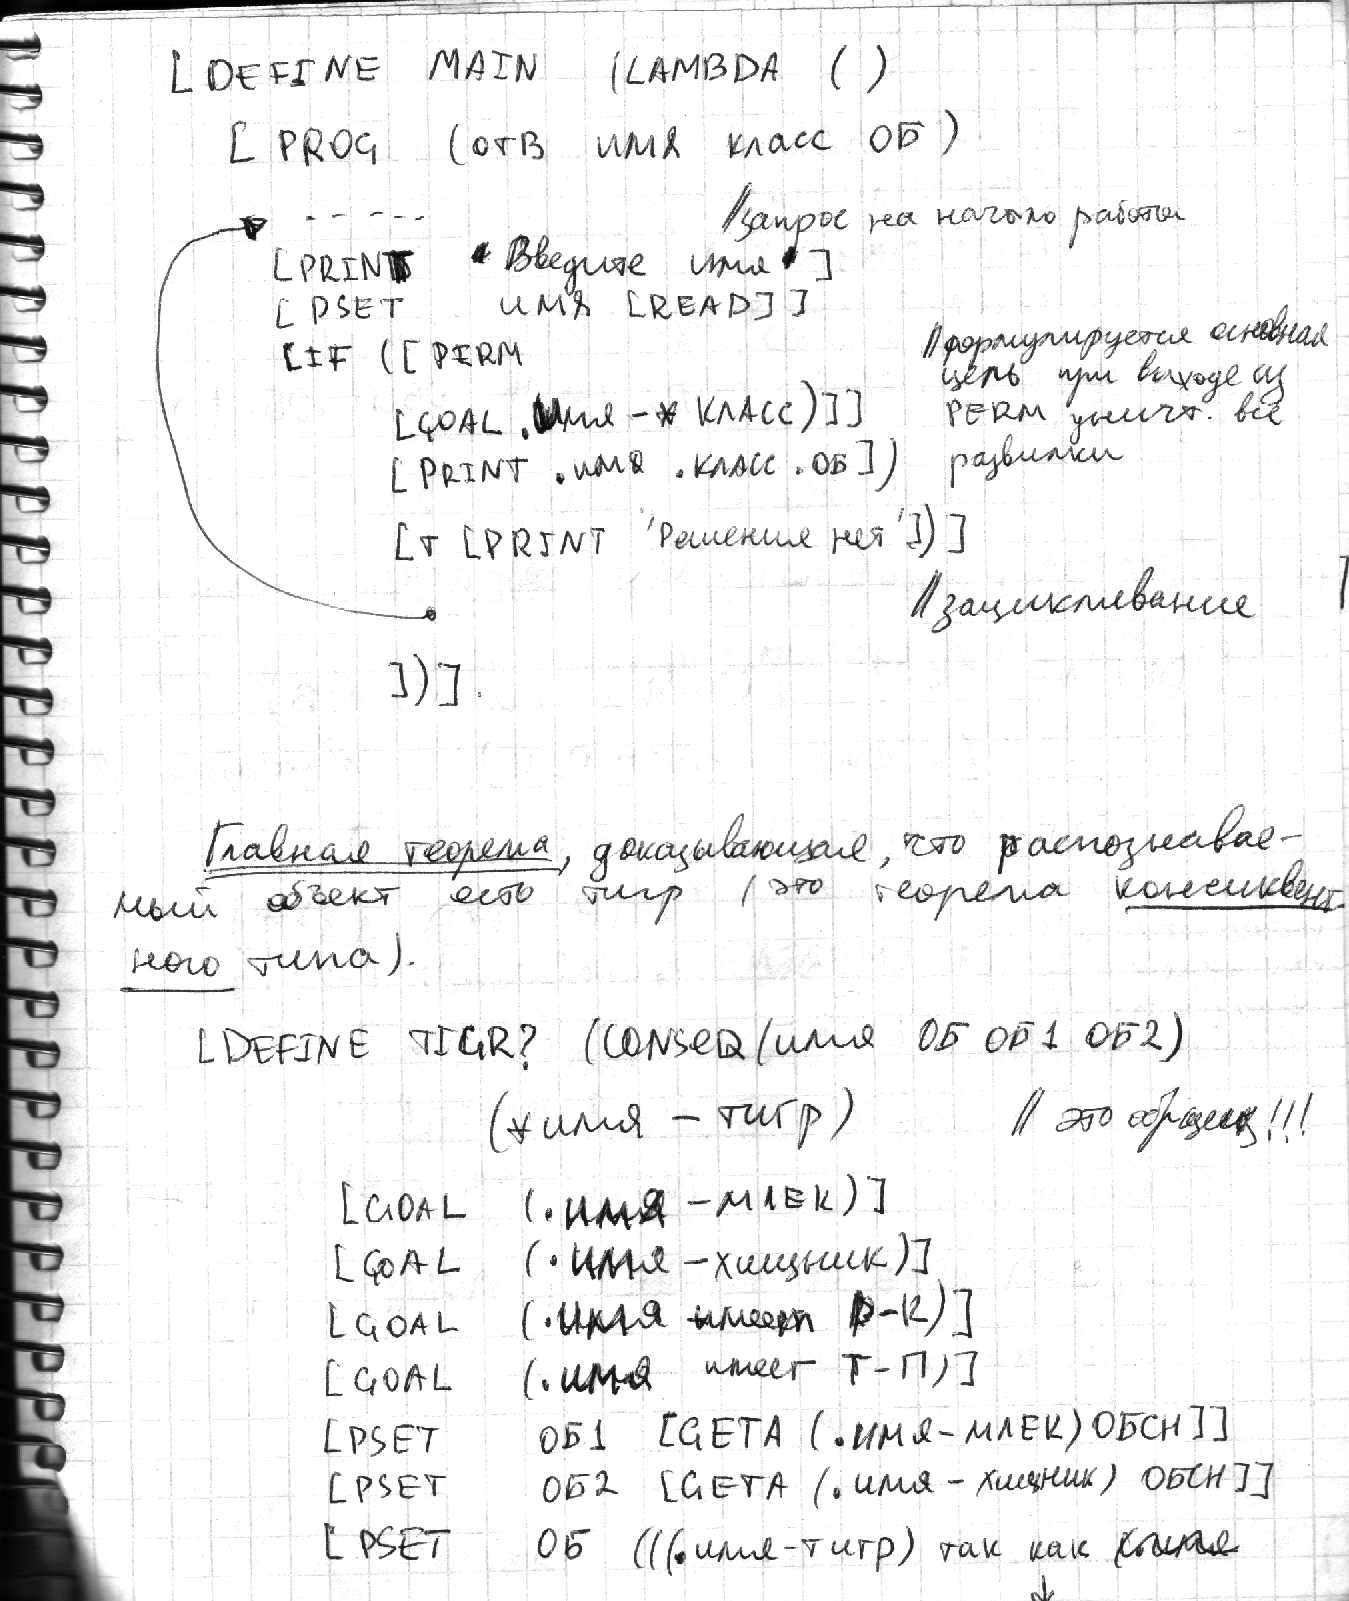 [DEFINE MAIN (LAMBDA ( )
[PROG (отв имя класс ОБ)
- - - - -   //запрос на начало работы
[PRINT "Введите имя"]
[PSET имя [READ]]
[IF ([PERM   //формулируется основная
цель при выходе из
[GOAL .имя - * КЛАСС)]]   PERM уничт. все
[PRINT .имя .класс .ОБ])   развилки
[T [PRINT 'Решения нет'])]
//зацикливание
])].
Главная теорема, доказывающая, что распознавае-
мый объект есть тигр (это теорема консиквент-
ного типа).
[DEFINE TIGR? (CONSEQ (имя ОБ ОБ1 ОБ2)
(*имя - тигр)   // это образец!!!
[GOAL (.имя - МЛЕК)]
[GOAL (.имя - хищник)]
[GOAL (.имя имеет Р-К)]
[GOAL (.имя имеет Т-П)]
[PSET ОБ1 [GETA (.имя - МЛЕК) ОБСН]]
[PSET ОБ2 [GETA (.имя - хищник) ОБСН]]
[PSET ОБ (((.имя - тигр) так как